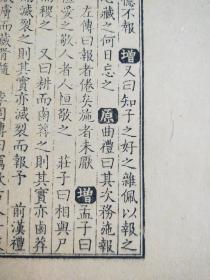 不報增又曰知子之好之雜佩以報之
心藏之何日忘之 原曲禮曰其次務施報
左傳曰報者倦矣施者未厭 增孟子曰
恒愛之敬人者人恒敬之 莊子曰相與尸
稷之 又曰耕而鹵莽之則其實亦鹵莽
滅裂之則其實亦滅裂而報予 前漢禮